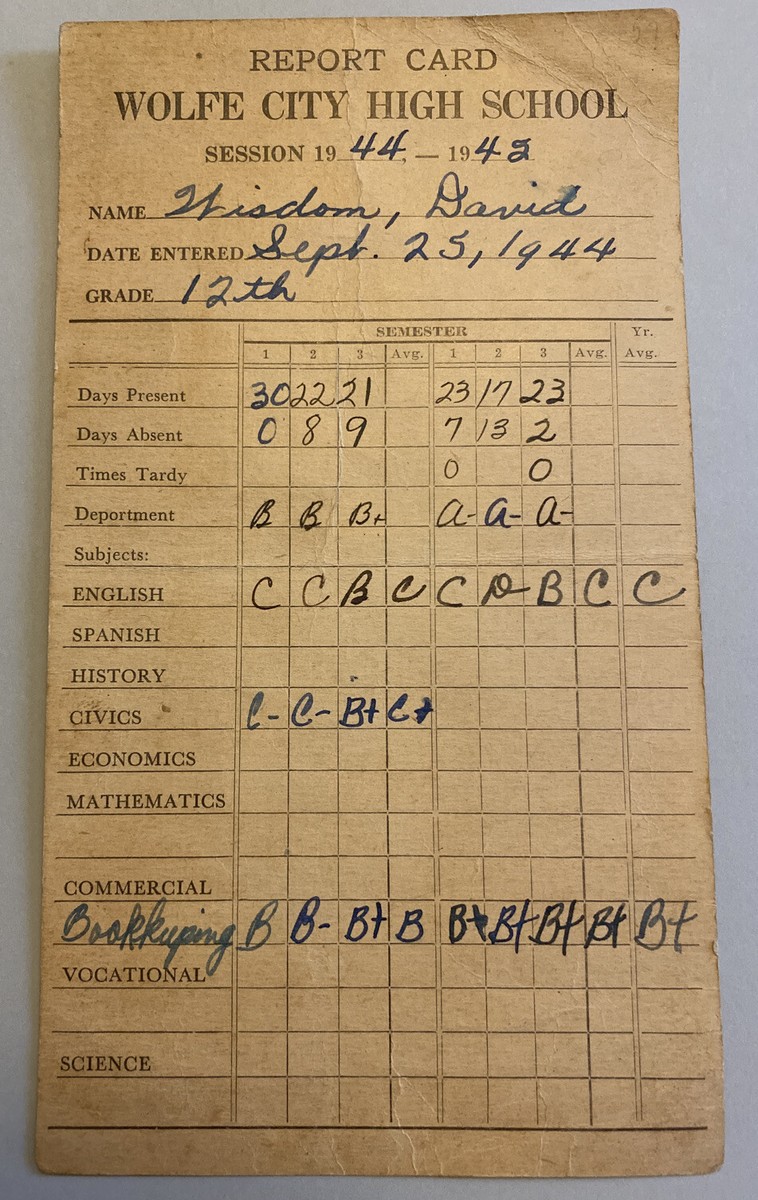 REPORT CARD
WOLFE CITY HIGH SCHOOL
SESSION 19 44, — 19 45
NAME Wisdom, David
DATE ENTERED Sept. 25, 1944
GRADE 12th
SEMESTER Yr.
1 2 3 Avg. 1 2 3 Avg. Avg.
Days Present 30 22 21 23 17 23
Days Absent 0 8 9 7 13 2
Times Tardy 0 0
Deportment B B B+ a- a- a-
Subjects:
ENGLISH C C B C C D B C C
SPANISH
HISTORY
CIVICS C- C- B+ C+
ECONOMICS
MATHEMATICS
COMMERCIAL
Bookkeeping B B- B+ B B+ B+ B+ B+ B+
VOCATIONAL
SCIENCE